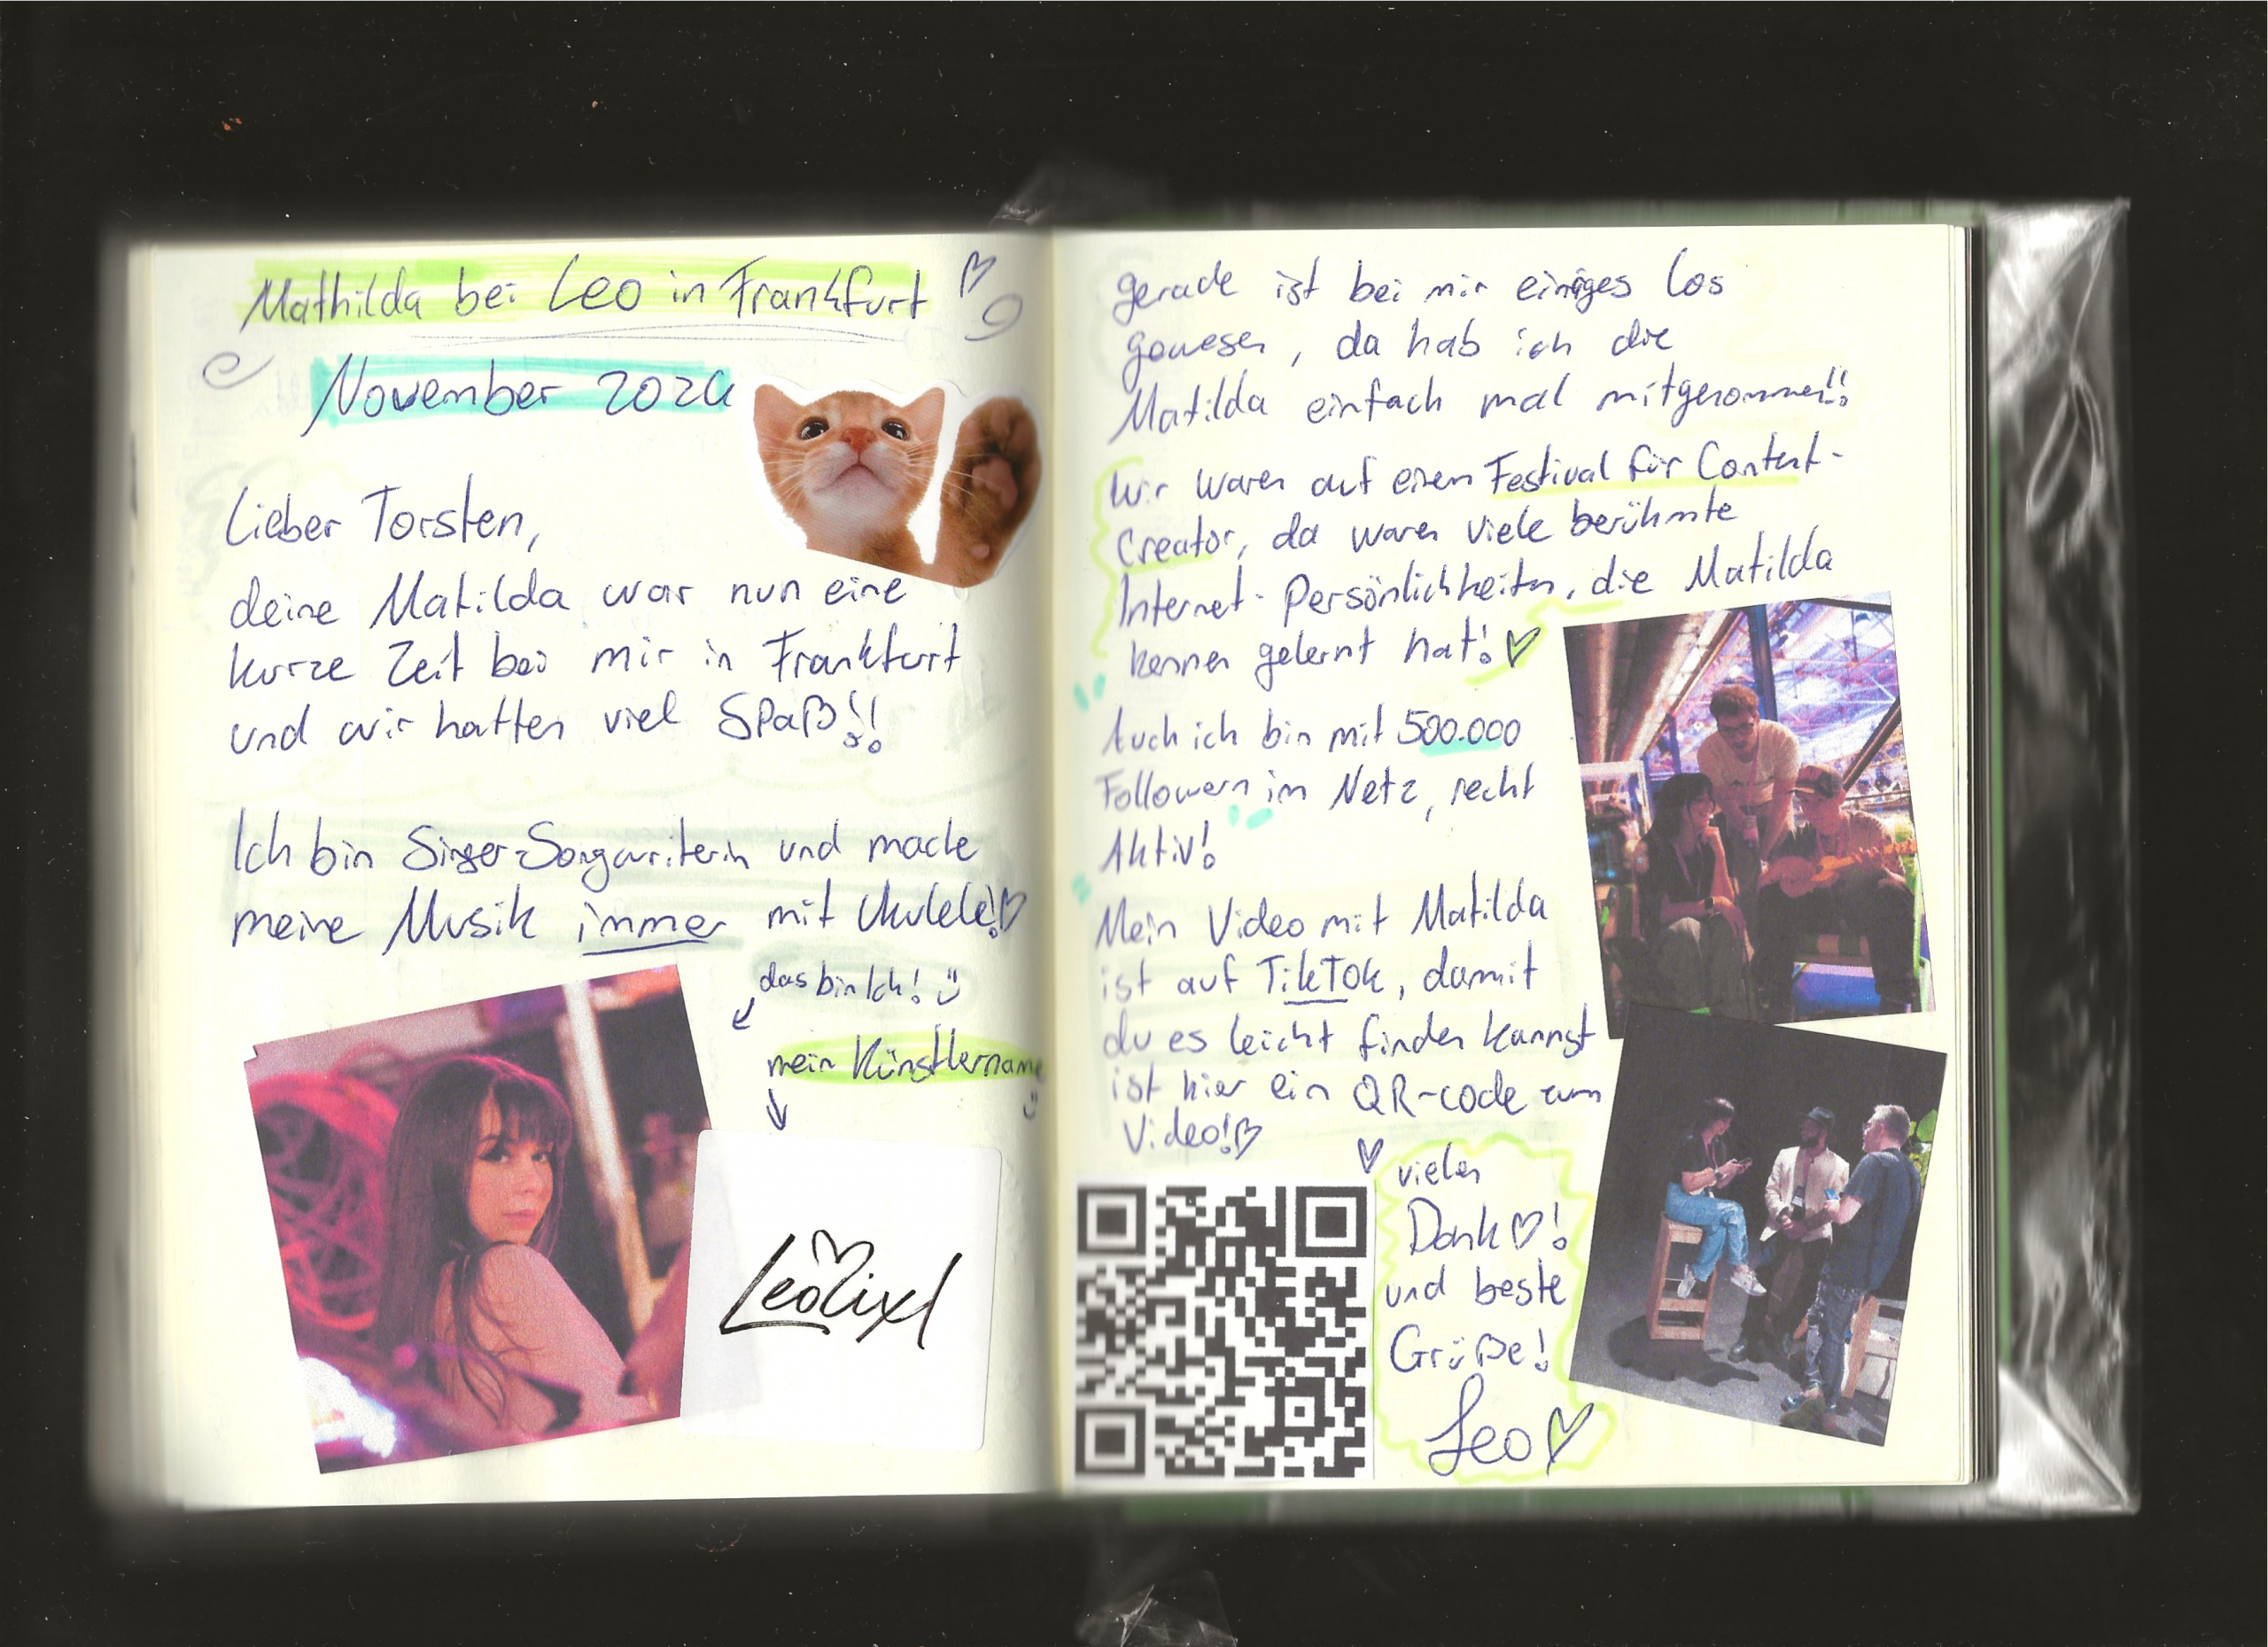 Mathilda bei Leo in Frankfurt
November 2024
Lieber Torsten,
deine Matilda war nun eine
kurze Zeit bei mir in Frankfurt
und wir hatten viel Spaß!!
Ich bin Singer-Songwriterin und mache
meine Musik immer mit Ukulele!
das bin Ich!
mein Künstlername
Leolixl
gerade ist bei mir einiges los
gewesen, da hab ich die
Matilda einfach mal mitgenommen!!
Wir waren auf einem Festival für Content-
Creator, da waren viele berühmte
Internet-Persönlichkeiten, die Matilda
kennen gelernt hat!
Auch ich bin mit 500.000
Followern im Netz, recht
Aktiv!
Mein Video mit Matilda
ist auf TikTok, damit
du es leicht finden kannst
ist hier ein QR-code zum
Video!
vielen
Dank!
und beste
Grüße!
Leo